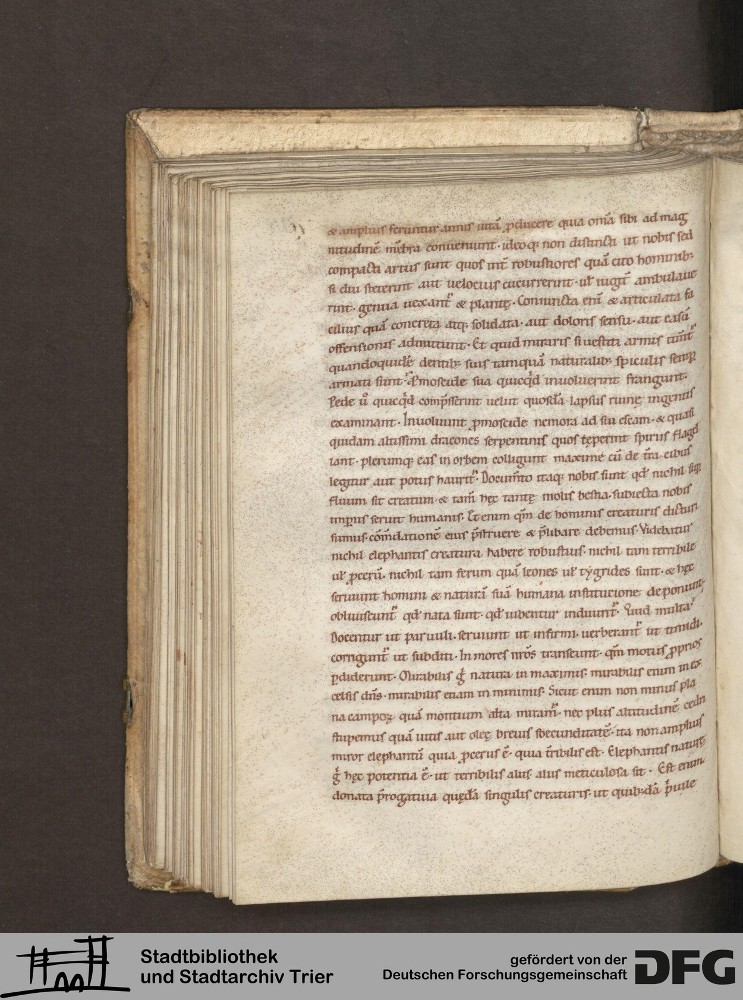 & amplius feruntur annis uitā ꝓducere quia om̄a sibi ad mag
nitudinē mēbra conueniunt · ideoq; non distincti ut nobis sed
compacti artus sunt quos int̄ robustiores quā cito hominib;
si diu steterint aut uelocius cucurrerint · uł iugit̄ ambulaue
rint · genua uexant̄ & plantę · Coniuncta eni̅ & articulata fa
cilius quā concreta atq; solidata · aut doloris sensū · aut casū
offensionis admittunt · Et quid miraris si uestiti armis
quandoquidē dentib; suis tamquā naturalib; spiculis semꝑ
armati sunt · P̄moscide sua quicq̇d inuoluerint frangunt ·
Pede u̇ quicq̇d cōpresserint uelut quosdā lapsus ruinę ingentis
examinant · Inuoluunt ꝓmoscide nemora ad sui escam · & quasi
quidam altissimi dracones serpentinis quos
iant · plerumq; eas in orbem colligunt maxime cū de t̄ra cibus
legitur aut potus haurit̄ · Documto itaq; nobis sunt qđ nichil sup
fluum sit creatum · & tam̄ hęc tantę molis bestia · subiecta nobis
imperiis seruit humanis · Et enim qm̄ de hominis creaturis dicturi
sumus · cōm̄dationē eius p̄struere & p̄libare debemus · Videbatur
nichil elephantis creatura habere robustius · nichil tam terribile
uł ꝓcerū · nichil tam ferum quā leones uł tygrides sunt · & hęc
seruiunt homini & naturā suā humana institucione deponunt ·
obliuiscunt̄ qđ nata sunt · qđ iubentur induunt̄ · Quid multa?
Docentur ut paruuli · seruiunt ut infirmi · uerberant̄ ut timidi ·
corrigunt̄ ut subditi · In mores nrōs transeunt · qm̄ motus ꝓprios
ꝑdiderunt · Mirabilis g̊ natura in maximis · mirabilis enim in ex
celsis dn̄s · mirabilis etiam in minimis · Sicut enim non minus pla
na campoꝝ quā montium alta miram̄ · nec plus altitudinē cedri
stupemus quā uitis aut oleę breuis foecunditatē · ita non amplius
miror elephantū quia ꝓcerus ē · quia t̄ribilis est · Elephantis naturę
g̊ hęc potentia ē · ut terribilis aliis · aliis meticulosa sit · Est enim
donata p̄rogatiua quędā singulis creaturis · ut quibdā
Stadtbibliothek
und Stadtarchiv Trier
gefördert von der
Deutschen Forschungsgemeinschaft
DFG